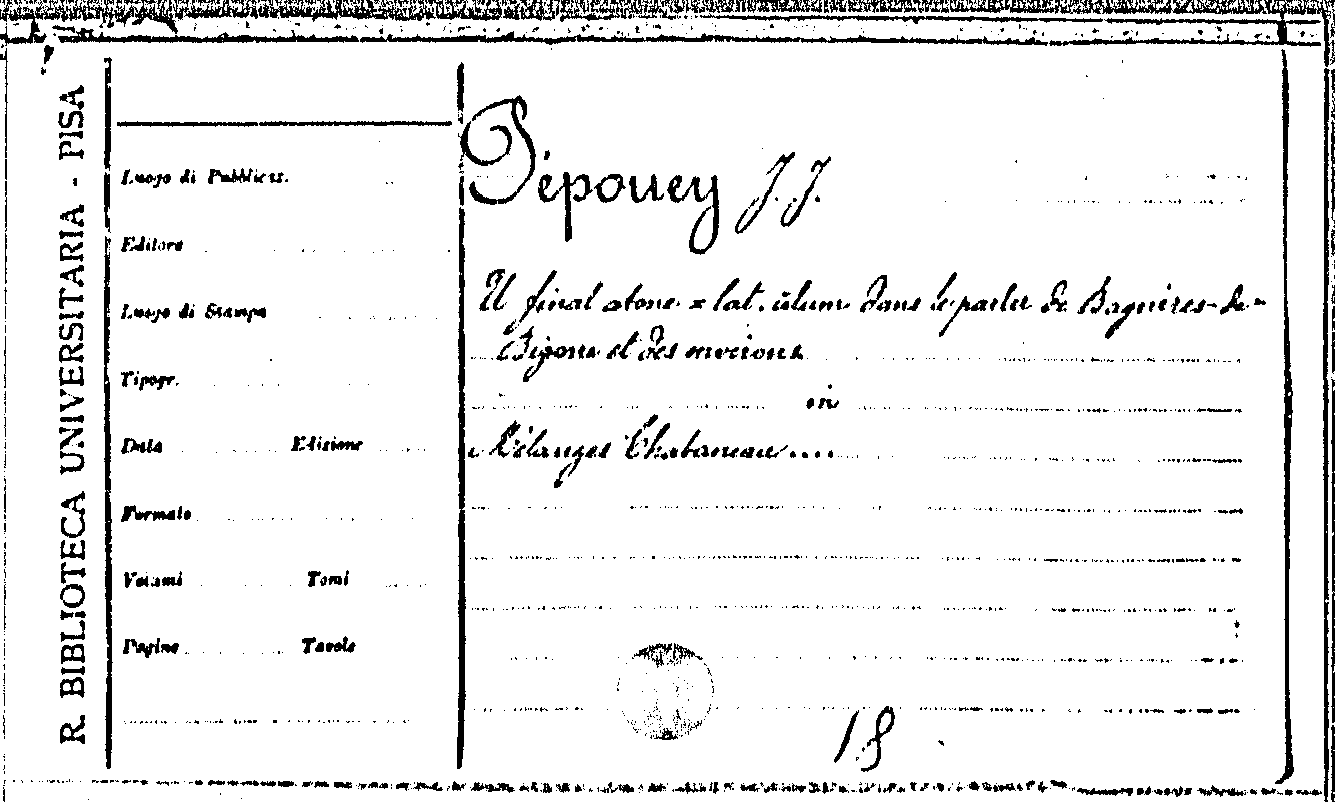 R. BIBLIOTECA UNIVERSITARIA - PISA
Luogo di Pubblicaz.
Editore
Luogo di Stampa
Tipogr.
Data Edizione
Formato
Volumi Tomi
Pagine Tavole
Pépouey J. J.
U final atone = lat. ūtum dans le parler de Bagnères-de-
Bigorre et des environs
in
Mélanges Chabaneau....
18